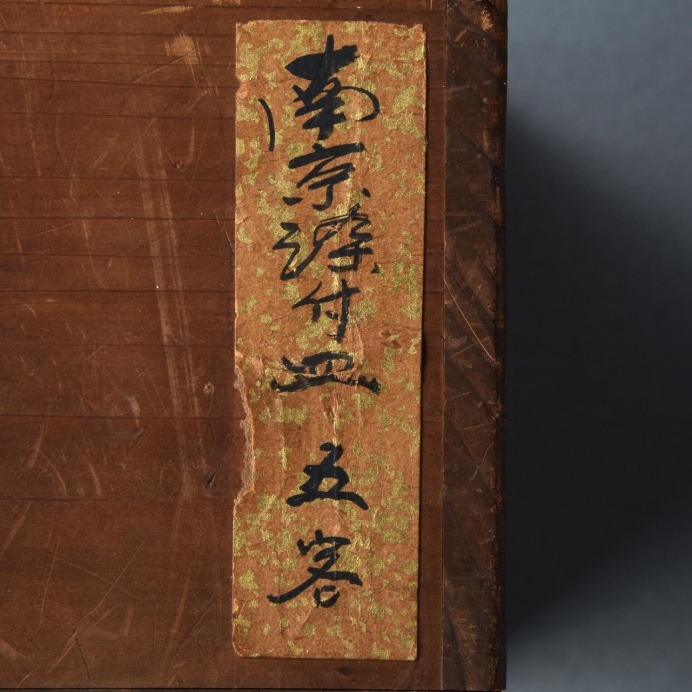 南京染付皿 五客